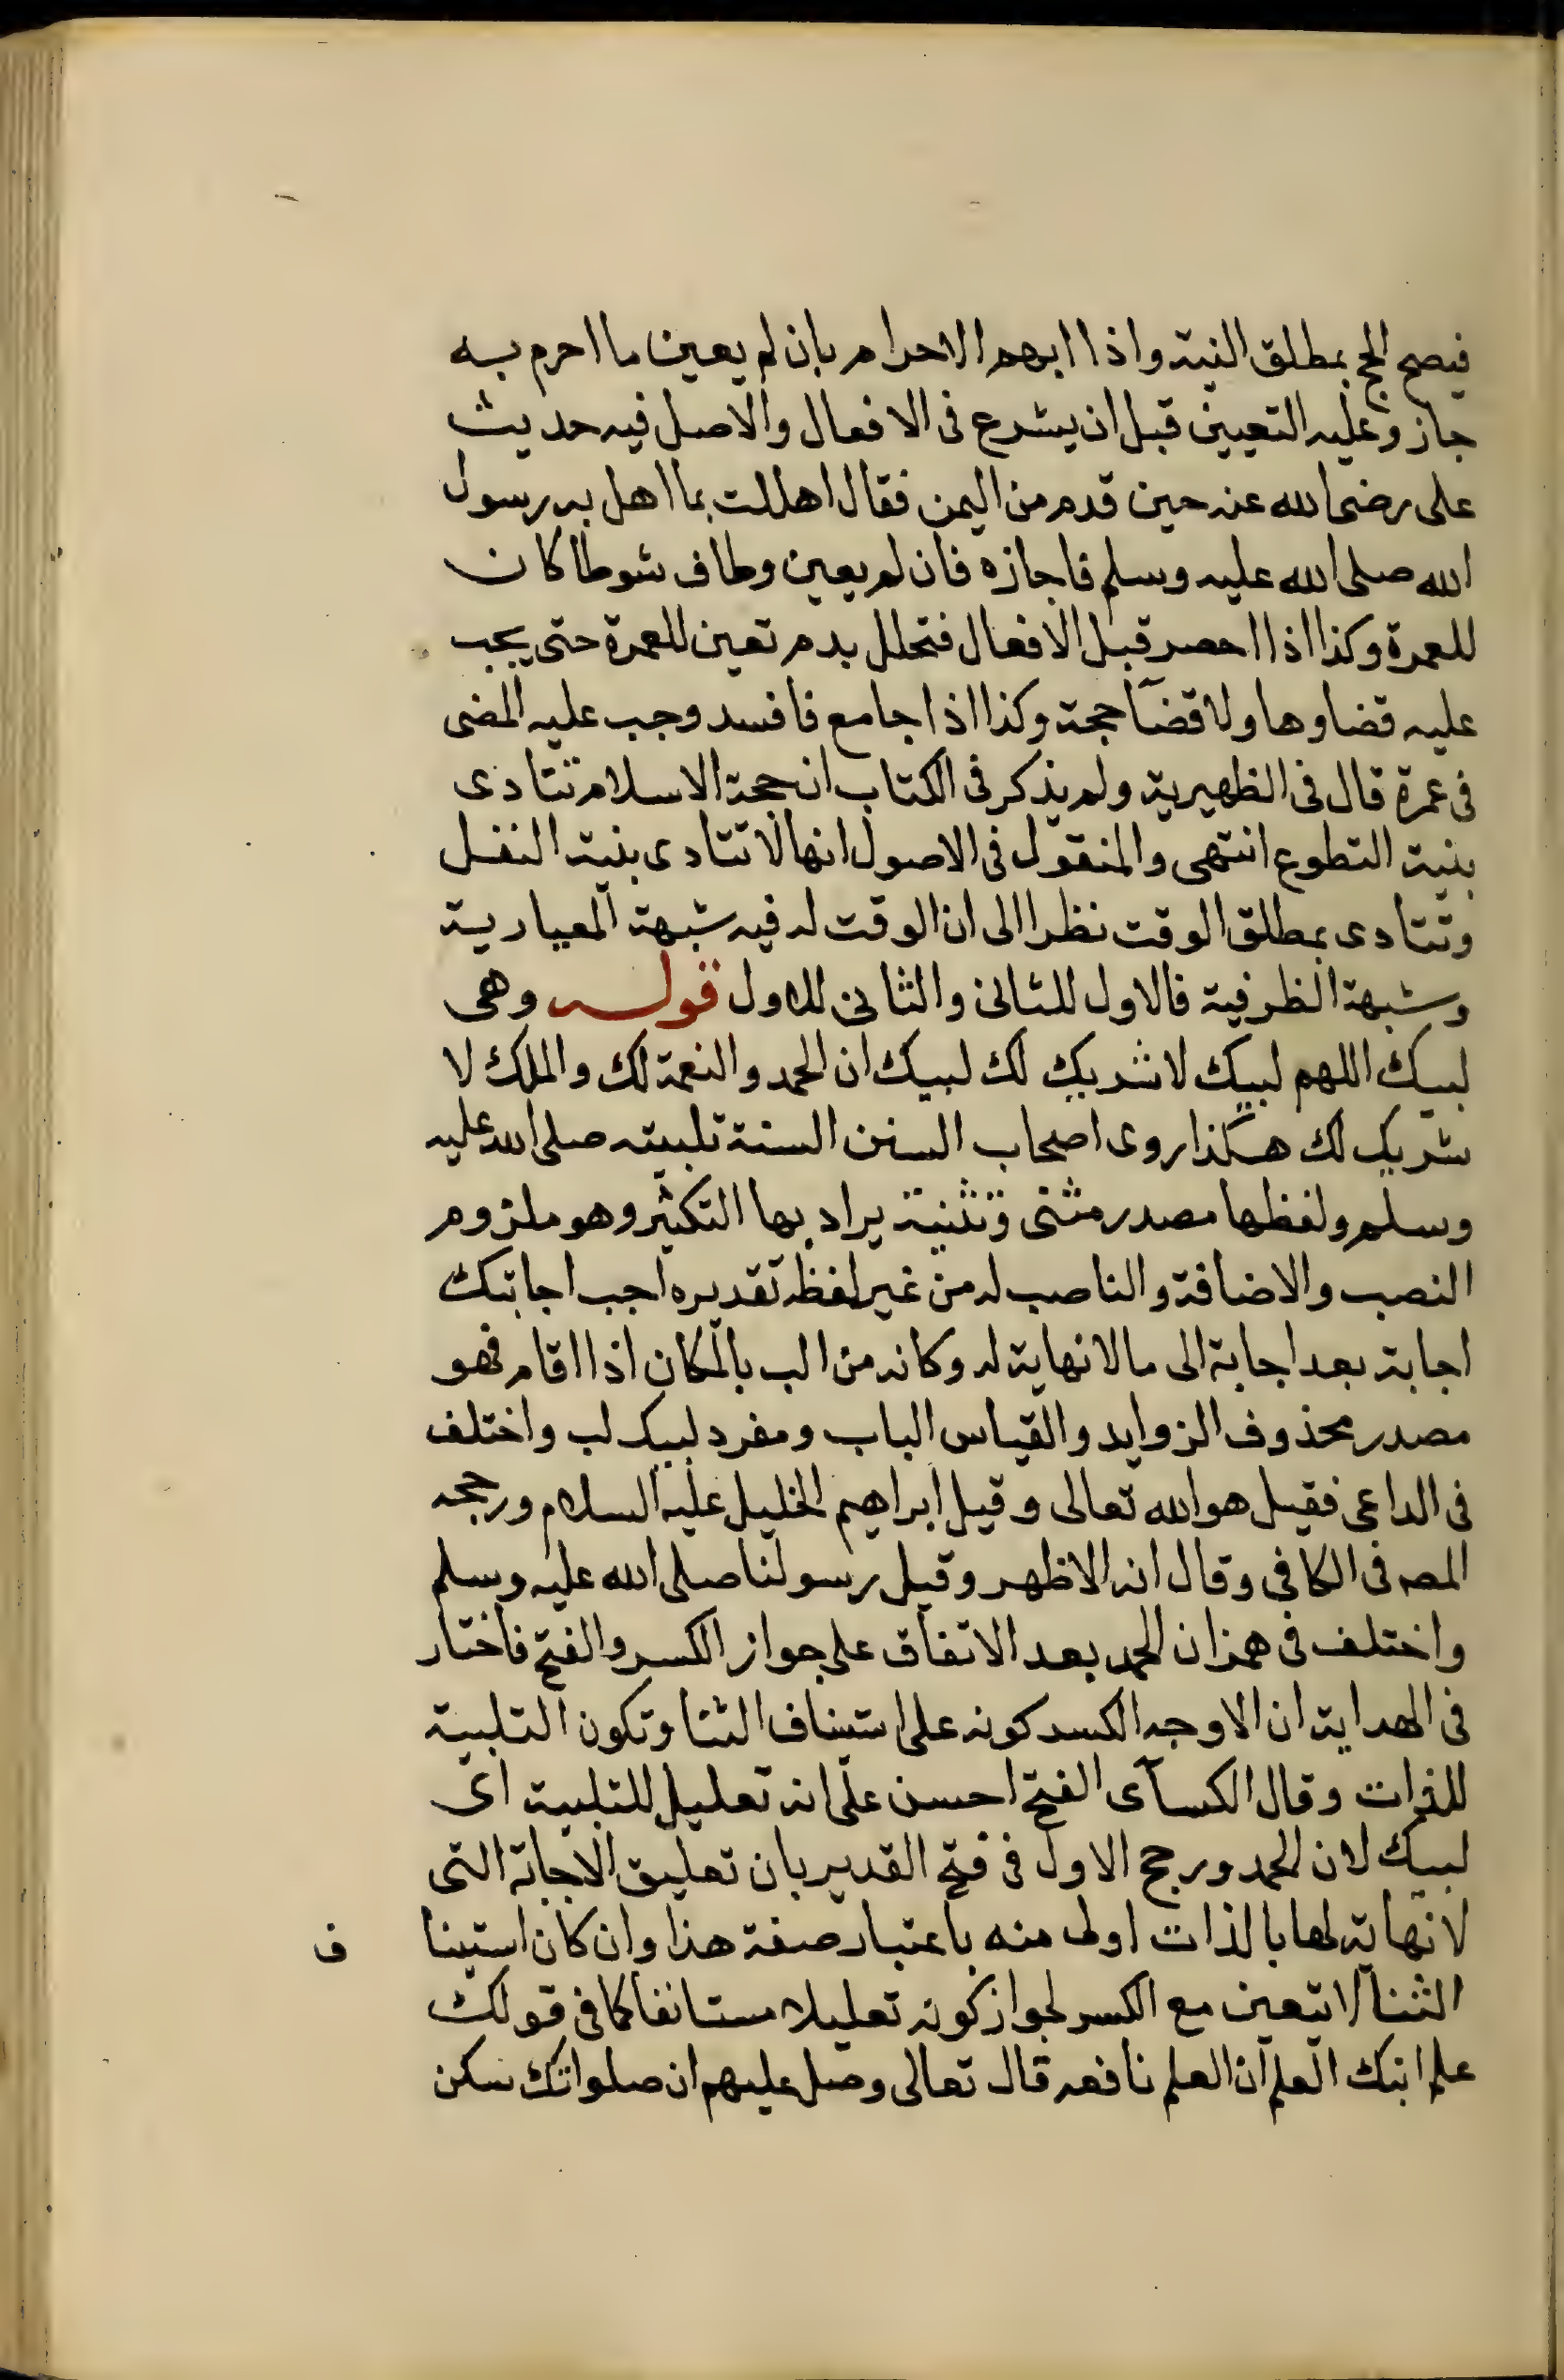 فيصح الحج بمطلق النية واذا ابهم الاحرام بان لم يعين ما احرم به
جاز وعليه التعيين قبل ان يشرع فى الافعال والاصل فيه حديث
على رضى الله عنه حين قدم من اليمن فقال اهللت بما اهل به رسول
الله صلى الله عليه وسلم فاجازه فان لم يعين وطاف شوطا كان
للعمرة وكذا اذا احصر قبل الافعال فتحلل بدم تعين للعمرة حتى يجب
عليه قضاوها ولا قضآ حجة وكذا اذا جامع فافسد وجب عليه المضى
فى عمرة قال فى الظهيرية ولم يذكر فى الكتاب ان حجة الاسلام تتادى
بنية التطوع انتهى والمنقول فى الاصول انها لا تتادى بنية النفل
وتتادى بمطلق الوقت نظرا الى ان الوقت له فيه شبهة المعيارية
وشبهة الظرفية فالاول للثانى والثانى للاول قوله وهى
لبيك اللهم لبيك لا شريك لك لبيك ان الحمد والنعمة لك والملك لا
شريك لك هكذا روى اصحاب السنن الستة تلبيته صلى الله عليه
وسلم ولفظها مصدر مثنى وتثنية يراد بها التكثير وهو ملزوم
النصب والاضافة والناصب له من غير لفظه تقديره اجب اجابتك
اجابة بعد اجابة الى ما لا نهاية له وكانه من الب بالمكان اذا اقام فهو
مصدر محذوف الزوايد والقياس الباب ومفرد لبيك لب واختلف
فى الداعى فقيل هو الله تعالى وقيل ابراهيم الخليل عليه السلام ورجحه
المصه فى الكافى وقال انه الاظهر وقيل رسولنا صلى الله عليه وسلم
واختلف فى همز ان الحمد بعد الاتفاق على جواز الكسر والفتح فاختار
فى الهداية ان الاوجه الكسر كونه على استيناف الثنا وتكون التلبية
للذات وقال الكسآى الفتح احسن على انه تعليل للتلبية اى
لبيك لان الحمد ورجح الاول فى فتح القدير بان تعليق الاجابة التى
لا نهاية لها بالذات اولى منه باعتبار صفة هذا وان كان استينا ف
الثنا لا يتعين مع الكسر لجواز كونه تعليلا مستانفا كما فى قولك
علم ابنك العلم ان العلم نافعه قال تعالى وصل عليهم ان صلواتك سكن